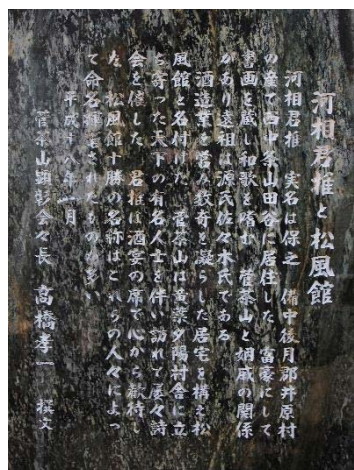 河相君推と松風館
河相君推 実名は保之 備中後月郡井原村
の産で西中条山田谷に居住した 富家にして
書画を蔵し和歌を嗜む 菅茶山と姻戚の関係
があり遠祖は源氏佐々木氏である
酒造業を営み数奇を凝らした居宅を構え松
風館と名付けた 菅茶山は黄葉夕陽村舎に立
ち寄った天下の有名人士を伴い訪れて屡々詩
会を催した 君推は酒宴の席で心から歓待し
た 松風館十勝の名称はこれらの人々によっ
て命名揮毫されたものが多い
平成十八年一月
菅茶山顕彰会々長 高橋孝一 撰文